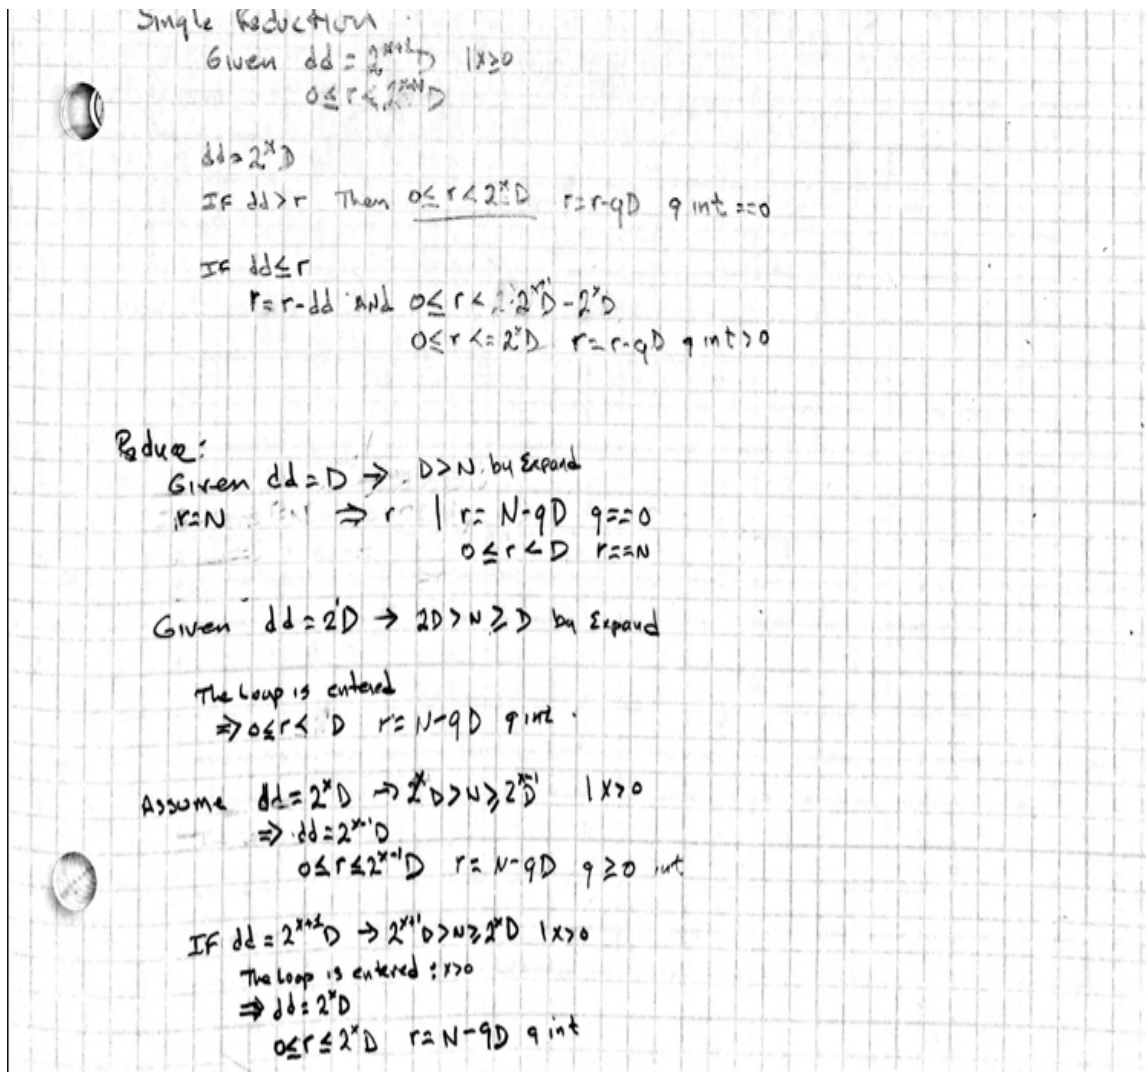 Single Reduction
Given dd = 2^x+1 D | x≥0
0 ≤ r < D
dd = 2^x D
IF dd > r Then 0 ≤ r < 2^x D r = r-qD q int ==0
IF dd ≤ r
r = r-dd AND 0 ≤ r < 2·2^x D - 2^x D
0 ≤ r <= 2^x D r = r-qD q int > 0
Reduce:
Given dd = D → D > N by Expand
r = N ⇒ r | r = N-qD q==0
0 ≤ r < D r==N
Given dd = 2^1 D → 2D > N ≥ D by Expand
The Loop is entered
⇒ 0 ≤ r < D r = N-qD q int
Assume dd = 2^x D → 2^x D > N ≥ 2^x-1 D | x>0
⇒ dd = 2^x-1 D
0 ≤ r ≤ 2^x-1 D r = N-qD q ≥ 0 int
IF dd = 2^x+1 D → 2^x+1 D > N ≥ 2^x D | x>0
The Loop is entered : x>0
⇒ dd = 2^x D
0 ≤ r ≤ 2^x D r = N-qD q int